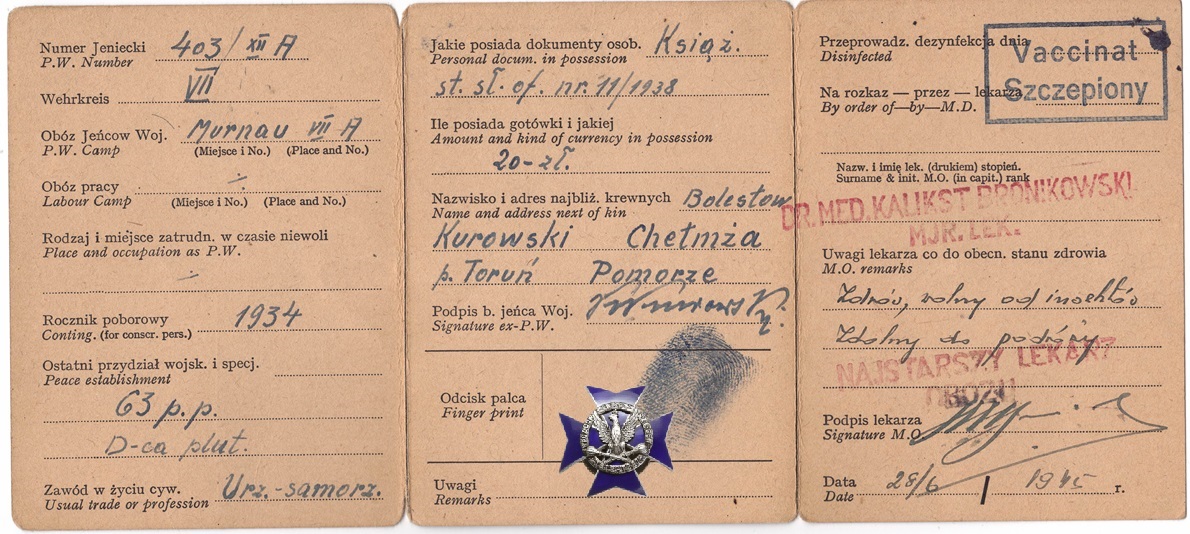 Numer Jeniecki 403/XII A
P.W. Number
VII
Wehrkreis
Obóz Jeńcow Woj. Murnau VII A
P.W. Camp (Miejsce i No.) (Place and No.)
Obóz pracy
Labour Camp (Miejsce i No.) (Place and No.)
Rodzaj i miejsce zatrudn. w czasie niewoli
Place and occupation as P.W.
Rocznik poborowy 1934
Conting. (for conscr. pers.)
Ostatni przydział wojsk. i specj.
Peace establishment
63 p.p.
D-ca plut.
Zawód w życiu cyw. Urz.-samorz.
Usual trade or profession
Jakie posiada dokumenty osob. Książ.
Personal docum. in possession
st. sł. of. nr. 11/1938
Ile posiada gotówki i jakiej
Amount and kind of currency in possession
20-zł.
Nazwisko i adres najbliż. krewnych Bolesław
Name and address next of kin
Kurowski Chełmża
p. Toruń Pomorze
Podpis b. jeńca Woj.
Signature ex-P.W.
Odcisk palca
Finger print
Uwagi
Remarks
Przeprowadz. dezynfekcja dnia
Disinfected
Vaccinat
Szczepiony
Na rozkaz — przez — lekarza
By order of—by—M.D.
Nazw. i imię lek. (drukiem) stopień.
Surname & init. M.O. (in capit.) rank
DR. MED. KALIKST BRONIKOWSKI
MJR. LEK.
Uwagi lekarza co do obecn. stanu zdrowia
M.O. remarks
Zdrów, wolny od insektów
Zdolny do podróży
NAJSTARSZY LEKARZ
OBOZU
Podpis lekarza
Signature M.O.
Data 28/6 1945 r.
Date